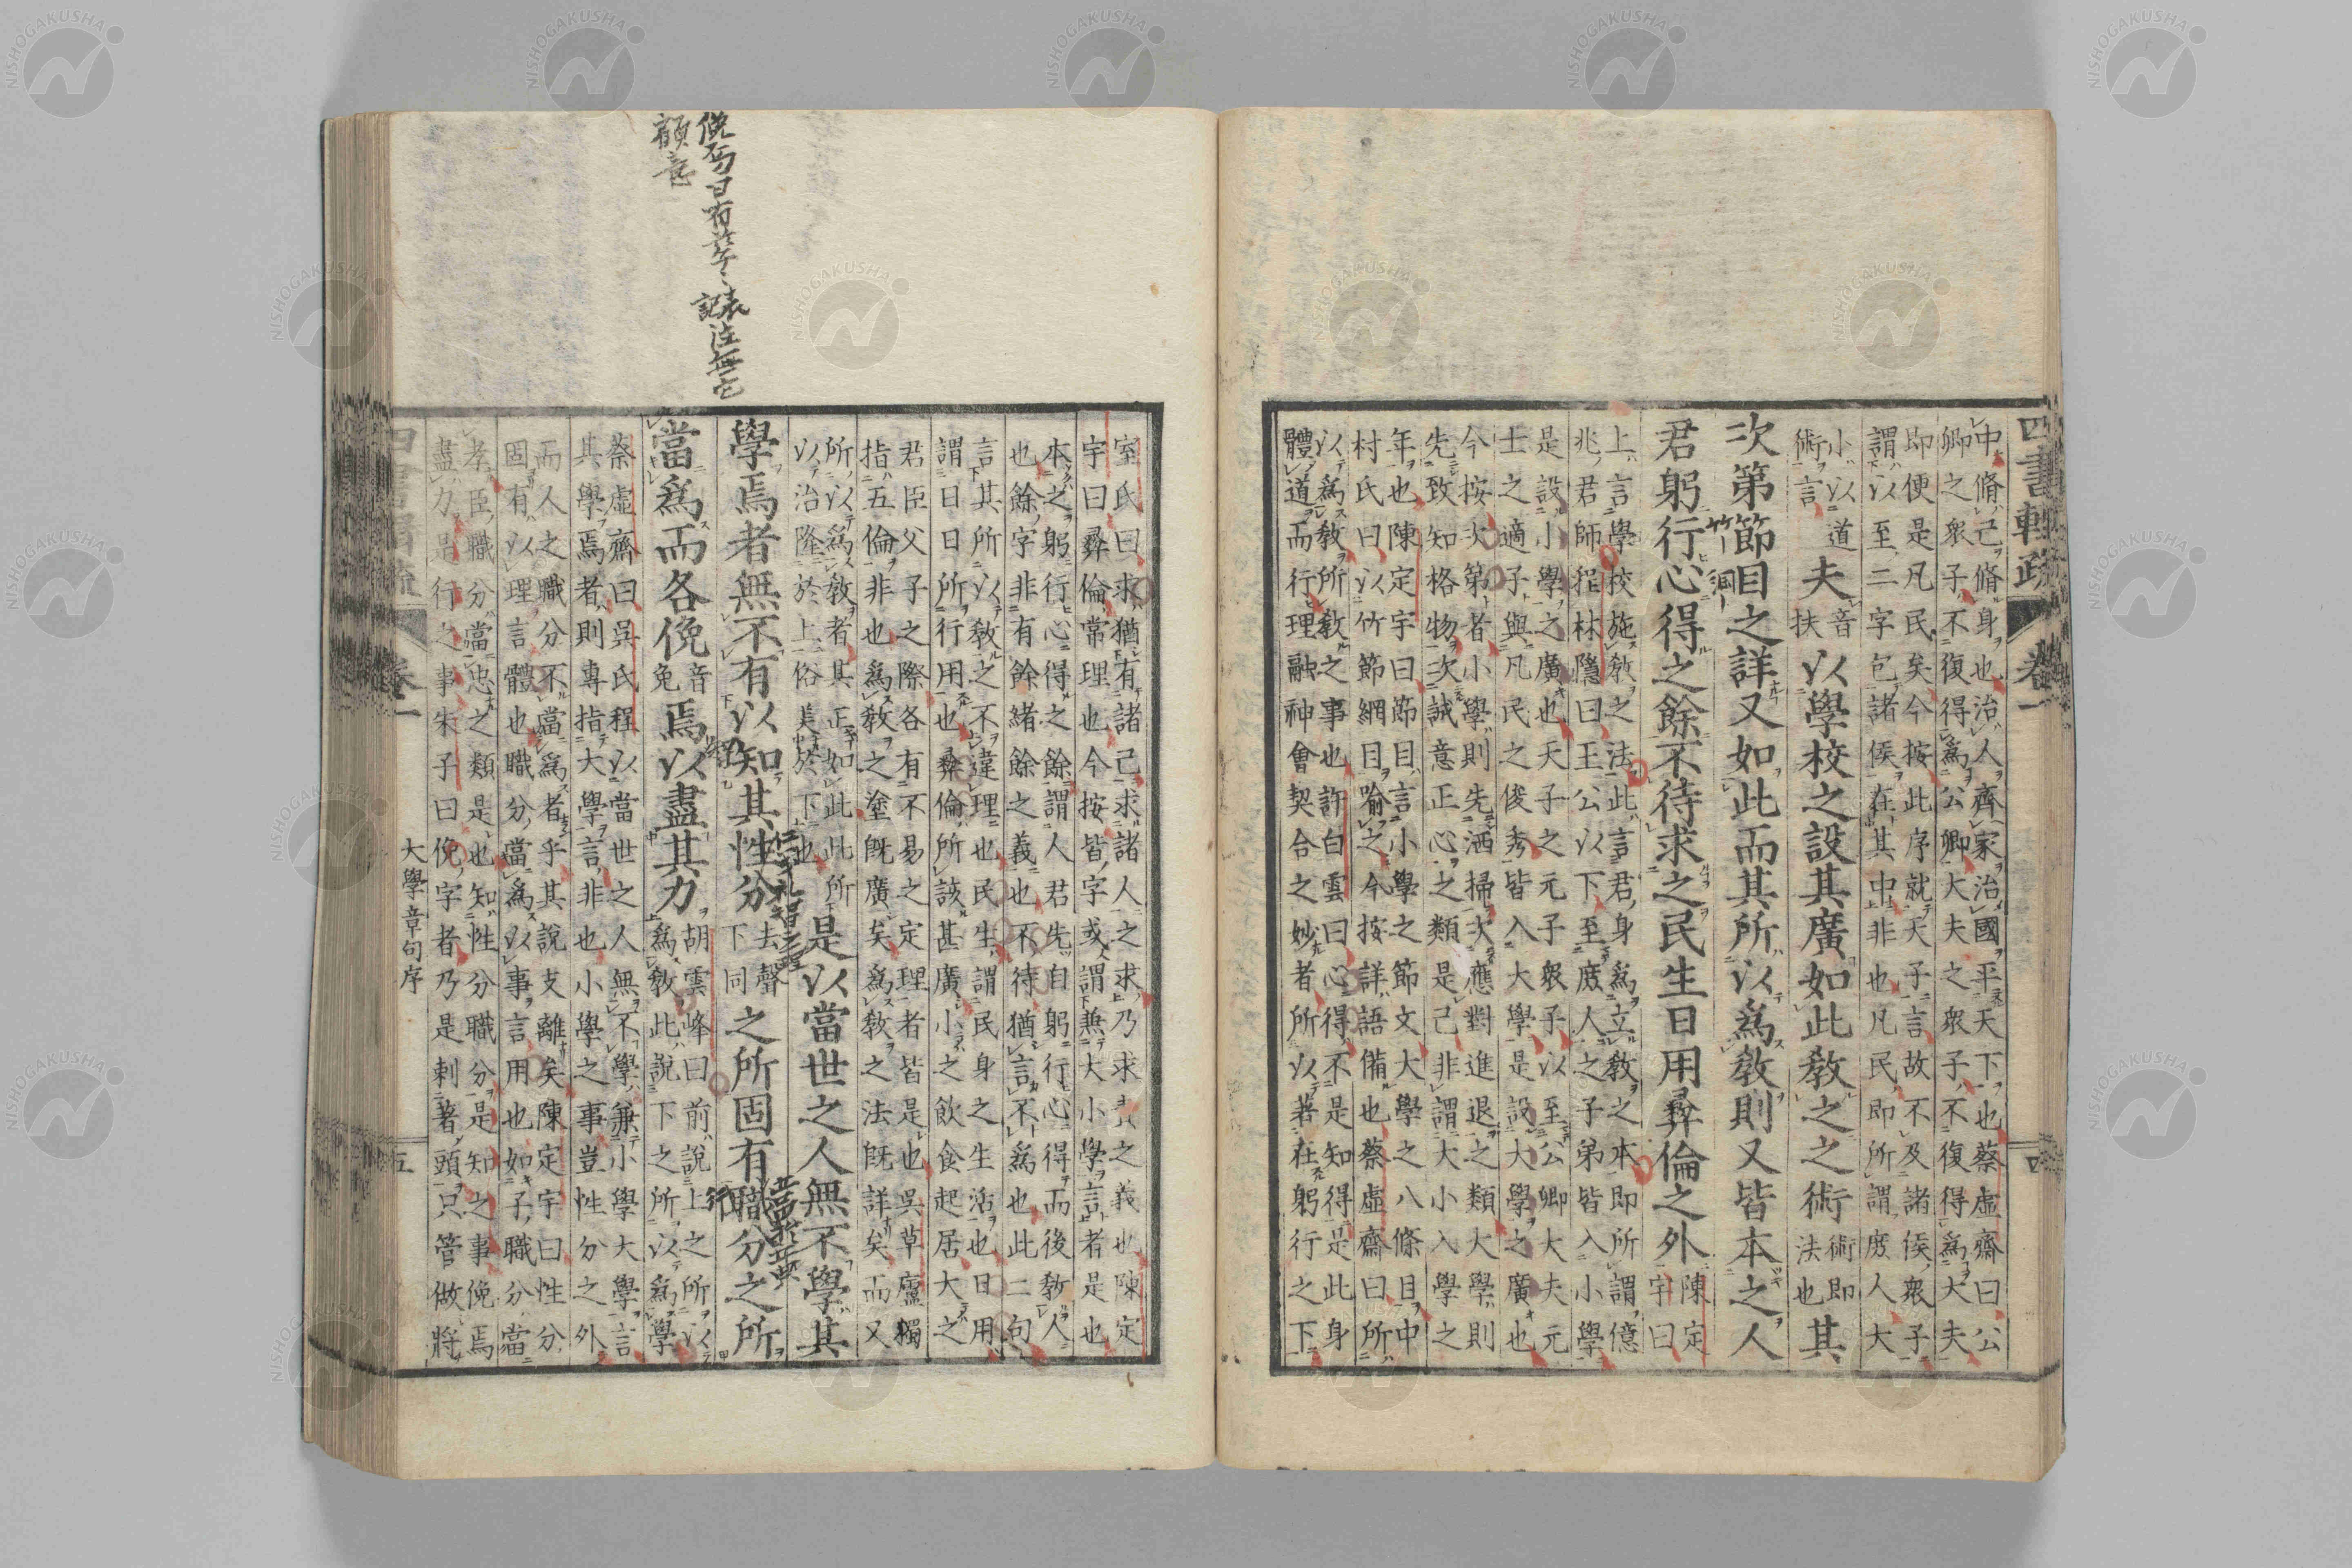 四書輯疏 卷一 四
中脩己脩身也治人齊家治國平天下也蔡虛齋曰公
卿之衆子不復得爲公卿大夫之衆子不復得爲大夫
即便是凡民矣今按此序就天子言故不及諸侯衆子
謂以至二字包諸侯在其中非也凡民即所謂庻人大
小以道術言夫音扶以學校之設其廣如此教之之術術即法也其
次第節目之詳又如此而其所以爲教則又皆本之人
君躬行心得之餘不待求之民生日用彝倫之外陳定宇曰
上言學校施教之法此言君身爲立教之本即所謂億
兆君師程林隱曰王公以下至庻人之子弟皆入小學
是設小學之廣也天子之元子衆子以至公卿大夫元
士之適子與凡民之俊秀皆入大學是設大學之廣也
今按次第者小學則先洒掃次應對進退之類大學則
先致知格物次誠意正心之類是己非謂大小入學之
年也陳定宇曰節目言小學之節文大學之八條目中
村氏曰以竹節網目喻之今按詳語備也蔡虛齋曰所
以爲教所教之事也許白雲曰心得不是知得是此身
體道而行理融神會契合之妙者所以著在躬行之下
室氏曰求猶有諸己求諸人之求乃求之義也陳定
宇曰彝倫常理也今按皆字或謂兼大小學言者是也
本之躬行心得之餘謂人君先自躬行心得而後教人
也餘字非有餘緒餘之義也不待猶言不爲也此二句
言其所以教之不違理也民生謂民身之生活也日用
謂日日所行用也彝倫所該甚廣小之飲食起居大之
君臣父子之際各有不易之定理者皆是也吳草廬獨
指五倫非也爲教之塗既廣矣爲教之法既詳矣而又
所以爲教者其正如此此所
以治隆於上俗美於下也是以當世之人無不學其
學焉者無不有以知其性分去聲下同之所固有職分之所
當爲而各俛音免焉以盡其力胡雲峰曰前說上之所以
爲教此說下之所以爲學
蔡虛齋曰吳氏程以當世之人無不學兼小學大學言
其學焉者則專指大學言非也小學之事豈性分之外
而人之職分不當爲者乎其說支離矣陳定宇曰性分
固有以理言體也職分當爲以事言用也如子職分當
孝臣職分當忠之類是也知性分職分是知之事俛焉
盡力是行之事朱子曰俛字者乃是剌著頭只管做將
大學章句序
卷一 五
NISHOGAKUSHA